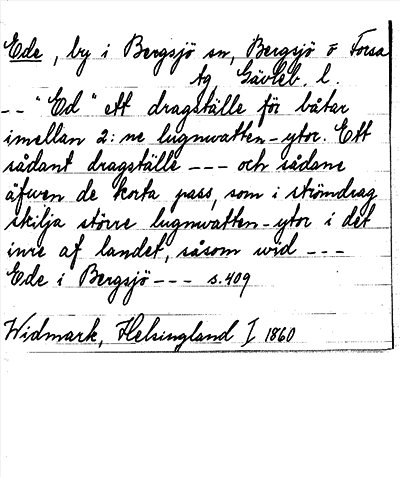 Ede, by i Bergsjö sn, Bergsjö o Forsa
tg Gävleb. l.
-- "Ed" ett dragställe för båtar
imellan 2:ne lugnwatten-ytor. Ett
sådant dragställe --- och sådane
äfwen de korta pass, som i strömdrag
skilja större lugnwatten-ytor i det
inre af landet, såsom wid ---
Ede i Bergsjö --- s. 409
Widmark, Helsingland I 1860